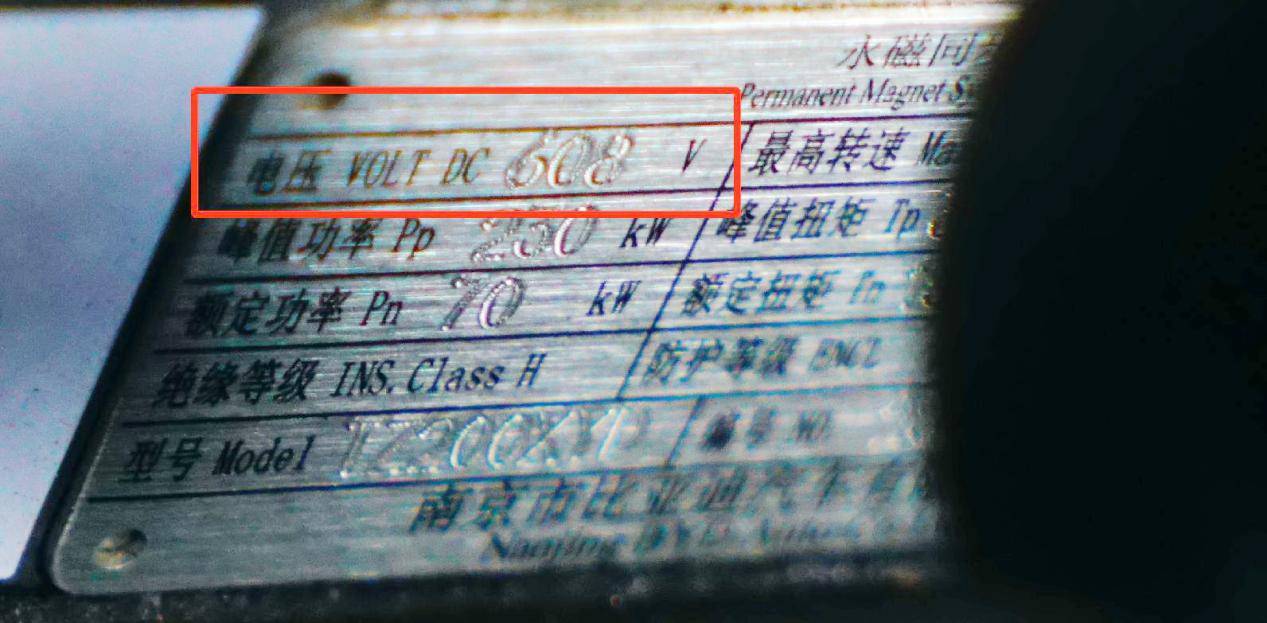 永磁同
Permanent Magnet
电压 VOLT DC 608 V
最高转速 Ma
峰值功率 Pp 230 kW
峰值扭矩 Tp
额定功率 Pn 70 kW
额定扭矩 Tn
绝缘等级 INS. Class H
防护等级 ENCL
型号 Model TZ200XYP
编号 NO.
南京市比亚迪汽车有
Nanjing BYD